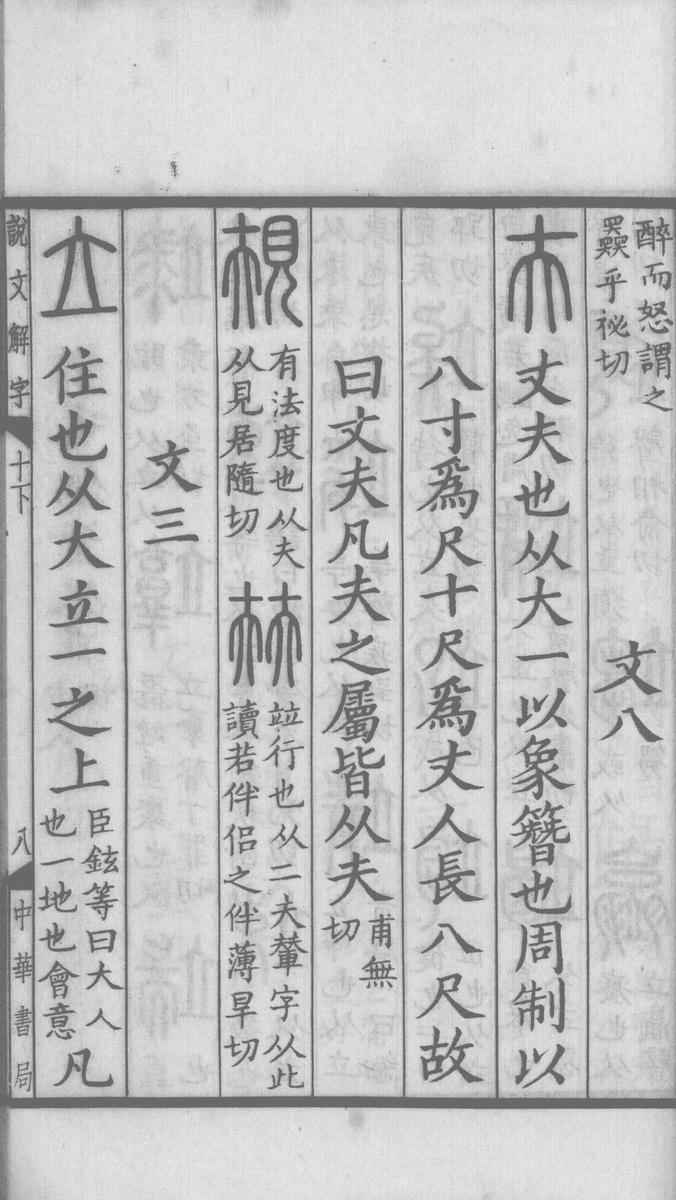 醉而怒謂之
奰平祕切
文八
夫丈夫也从大一以象簪也周制以
八寸爲尺十尺爲丈人長八尺故
曰丈夫凡夫之屬皆从夫
甫無
切
規
有法度也从夫
从見居隨切
㚘
竝行也从二夫輦字从此
讀若伴侶之伴薄旱切
文三
立住也从大立一之上
臣鉉等曰大人
也一地也會意
凡
說文解字
十下
八
中華書局